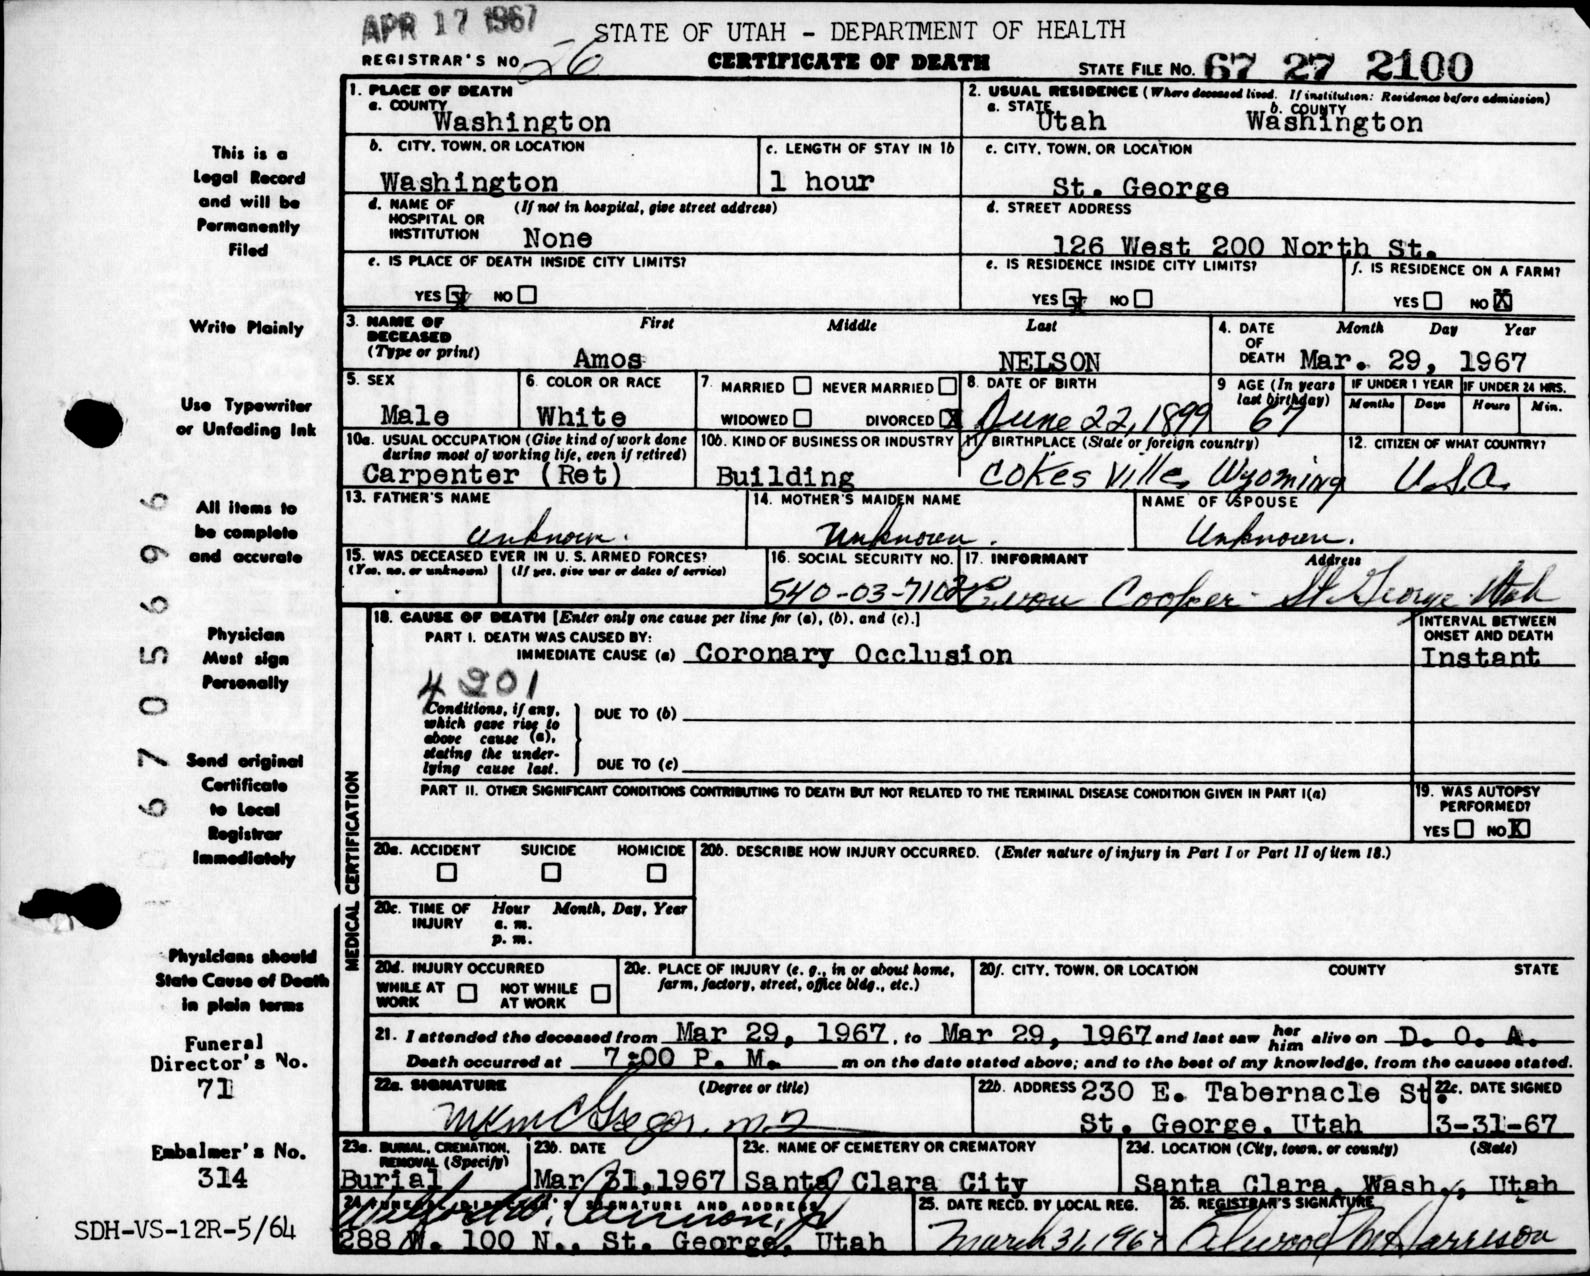 APR 17 1967
STATE OF UTAH - DEPARTMENT OF HEALTH
REGISTRAR'S NO. 26
CERTIFICATE OF DEATH
STATE FILE NO. 67 27 2100
This is a
Legal Record
and will be
Permanently
Filed
Write Plainly
Use Typewriter
or Unfading Ink
All items to
be complete
and accurate
Physician
Must sign
Personally
Send original
Certificate
to Local
Registrar
Immediately
Physicians should
State Cause of Death
in plain terms
Funeral
Director's No.
71
Embalmer's No.
314
SDH-VS-12R-5/64
6705696
1. PLACE OF DEATH
a. COUNTY
Washington
2. USUAL RESIDENCE (Where deceased lived. If institution: Residence before admission)
a. STATE b. COUNTY
Utah Washington
b. CITY, TOWN, OR LOCATION
Washington
c. LENGTH OF STAY IN 1b
1 hour
c. CITY, TOWN, OR LOCATION
St. George
d. NAME OF (If not in hospital, give street address)
HOSPITAL OR
INSTITUTION None
d. STREET ADDRESS
126 West 200 North St.
e. IS PLACE OF DEATH INSIDE CITY LIMITS?
YES X NO
e. IS RESIDENCE INSIDE CITY LIMITS?
YES X NO
f. IS RESIDENCE ON A FARM?
YES NO X
3. NAME OF First Middle Last
DECEASED
(Type or print)
Amos NELSON
4. DATE Month Day Year
OF
DEATH Mar. 29, 1967
5. SEX
Male
6. COLOR OR RACE
White
7. MARRIED NEVER MARRIED
WIDOWED DIVORCED X
8. DATE OF BIRTH
June 22, 1899
9 AGE (In years
last birthday)
67
IF UNDER 1 YEAR IF UNDER 24 HRS.
Months Days Hours Min.
10a. USUAL OCCUPATION (Give kind of work done
during most of working life, even if retired)
Carpenter (Ret)
10b. KIND OF BUSINESS OR INDUSTRY
Building
11. BIRTHPLACE (State or foreign country)
Cokesville, Wyoming
12. CITIZEN OF WHAT COUNTRY?
U.S.A.
13. FATHER'S NAME
unknown.
14. MOTHER'S MAIDEN NAME
Unknown.
NAME OF SPOUSE
Unknown.
15. WAS DECEASED EVER IN U. S. ARMED FORCES?
(Yes, no, or unknown) (If yes, give war or dates of service)
16. SOCIAL SECURITY NO.
540-03-7102
17. INFORMANT Address
Cooper St George Utah
18. CAUSE OF DEATH [Enter only one cause per line for (a), (b), and (c).]
PART I. DEATH WAS CAUSED BY:
IMMEDIATE CAUSE (a) Coronary Occlusion
INTERVAL BETWEEN
ONSET AND DEATH
Instant
4201
Conditions, if any,
which gave rise to
above cause (a),
stating the under-
lying cause last.
DUE TO (b)
DUE TO (c)
PART II. OTHER SIGNIFICANT CONDITIONS CONTRIBUTING TO DEATH BUT NOT RELATED TO THE TERMINAL DISEASE CONDITION GIVEN IN PART I(a)
19. WAS AUTOPSY
PERFORMED?
YES NO X
MEDICAL CERTIFICATION
20a. ACCIDENT SUICIDE HOMICIDE
20b. DESCRIBE HOW INJURY OCCURRED. (Enter nature of injury in Part I or Part II of item 18.)
20c. TIME OF Hour Month, Day, Year
INJURY a. m.
p. m.
20d. INJURY OCCURRED
WHILE AT NOT WHILE
WORK AT WORK
20e. PLACE OF INJURY (e. g., in or about home,
farm, factory, street, office bldg., etc.)
20f. CITY, TOWN, OR LOCATION COUNTY STATE
21. I attended the deceased from Mar 29, 1967, to Mar 29, 1967 and last saw her him alive on D. O. A.
Death occurred at 7:00 P. M. m on the date stated above; and to the best of my knowledge, from the causes stated.
22a. SIGNATURE (Degree or title)
McGregor, M.D.
22b. ADDRESS 230 E. Tabernacle St.
St. George, Utah
22c. DATE SIGNED
3-31-67
23a. BURIAL, CREMATION,
REMOVAL (Specify)
Burial
23b. DATE
Mar 31, 1967
23c. NAME OF CEMETERY OR CREMATORY
Santa Clara City
23d. LOCATION (City, town, or county) (State)
Santa Clara, Wash., Utah
24. FUNERAL DIRECTOR'S SIGNATURE AND ADDRESS
288 W. 100 N., St. George, Utah
25. DATE RECD. BY LOCAL REG.
March 31, 1967
26. REGISTRAR'S SIGNATURE
Harrison